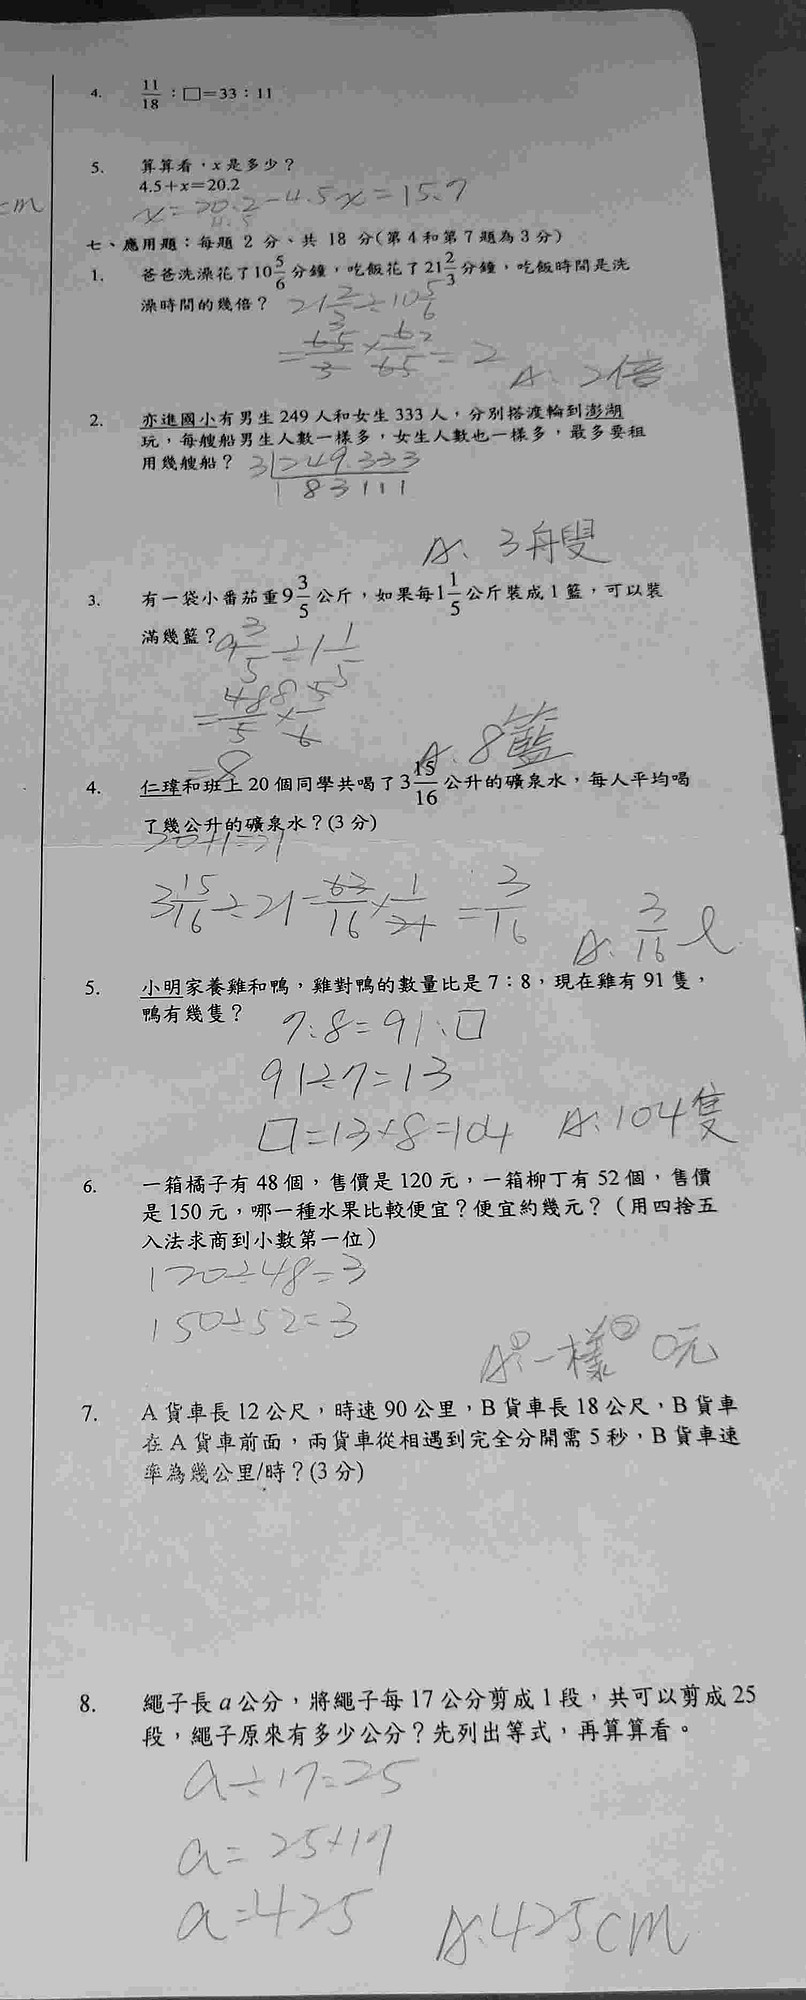 cm
4. 11/18：□＝33：11
5. 算算看，x是多少？
4.5＋x＝20.2
x=20.2-4.5 x=15.7
4.5
七、應用題：每題 2 分、共 18 分(第 4 和第 7 題為 3 分)
1. 爸爸洗澡花了10 5/6 分鐘，吃飯花了21 2/3 分鐘，吃飯時間是洗
澡時間的幾倍？
21 2/3÷10 5/6
=65/3×6/65=2
A：2倍
2. 亦進國小有男生 249 人和女生 333 人，分別搭渡輪到澎湖
玩，每艘船男生人數一樣多，女生人數也一樣多，最多要租
用幾艘船？
3 249.333
83 111
A：3艘
3. 有一袋小番茄重9 3/5 公斤，如果每1 1/5 公斤裝成 1 籃，可以裝
滿幾籃？
9 3/5÷1 1/5
=48/5×5/6
=8
A：8籃
4. 仁瑋和班上 20 個同學共喝了 3 15/16 公升的礦泉水，每人平均喝
了幾公升的礦泉水？(3 分)
20+1=21
3 15/16÷21=63/16×1/21=3/16
A：3/16 ℓ
5. 小明家養雞和鴨，雞對鴨的數量比是 7：8，現在雞有 91 隻，
鴨有幾隻？
7:8=91:□
91÷7=13
□=13×8=104
A：104隻
6. 一箱橘子有 48 個，售價是 120 元，一箱柳丁有 52 個，售價
是 150 元，哪一種水果比較便宜？便宜約幾元？（用四捨五
入法求商到小數第一位）
120÷48=3
150÷52=3
A：①一樣②0元
7. A 貨車長 12 公尺，時速 90 公里，B 貨車長 18 公尺，B 貨車
在 A 貨車前面，兩貨車從相遇到完全分開需 5 秒，B 貨車速
率為幾公里/時？(3 分)
8. 繩子長 a 公分，將繩子每 17 公分剪成 1 段，共可以剪成 25
段，繩子原來有多少公分？先列出等式，再算算看。
a÷17=25
a=25×17
a=425
A：425cm